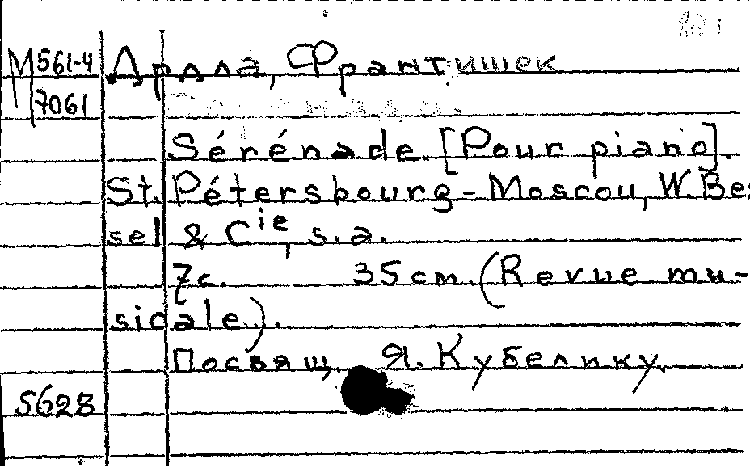 М 561-4 Дрдла, Франтишек
7061
Sérénade. [Pour piano].
St. Pétersbourg - Moscou, W. Bes
sel & Cie, s.a.
7с. 35 cm. (Revue mu-
sicale).
Посвящ. Я. Кубелику.
5628